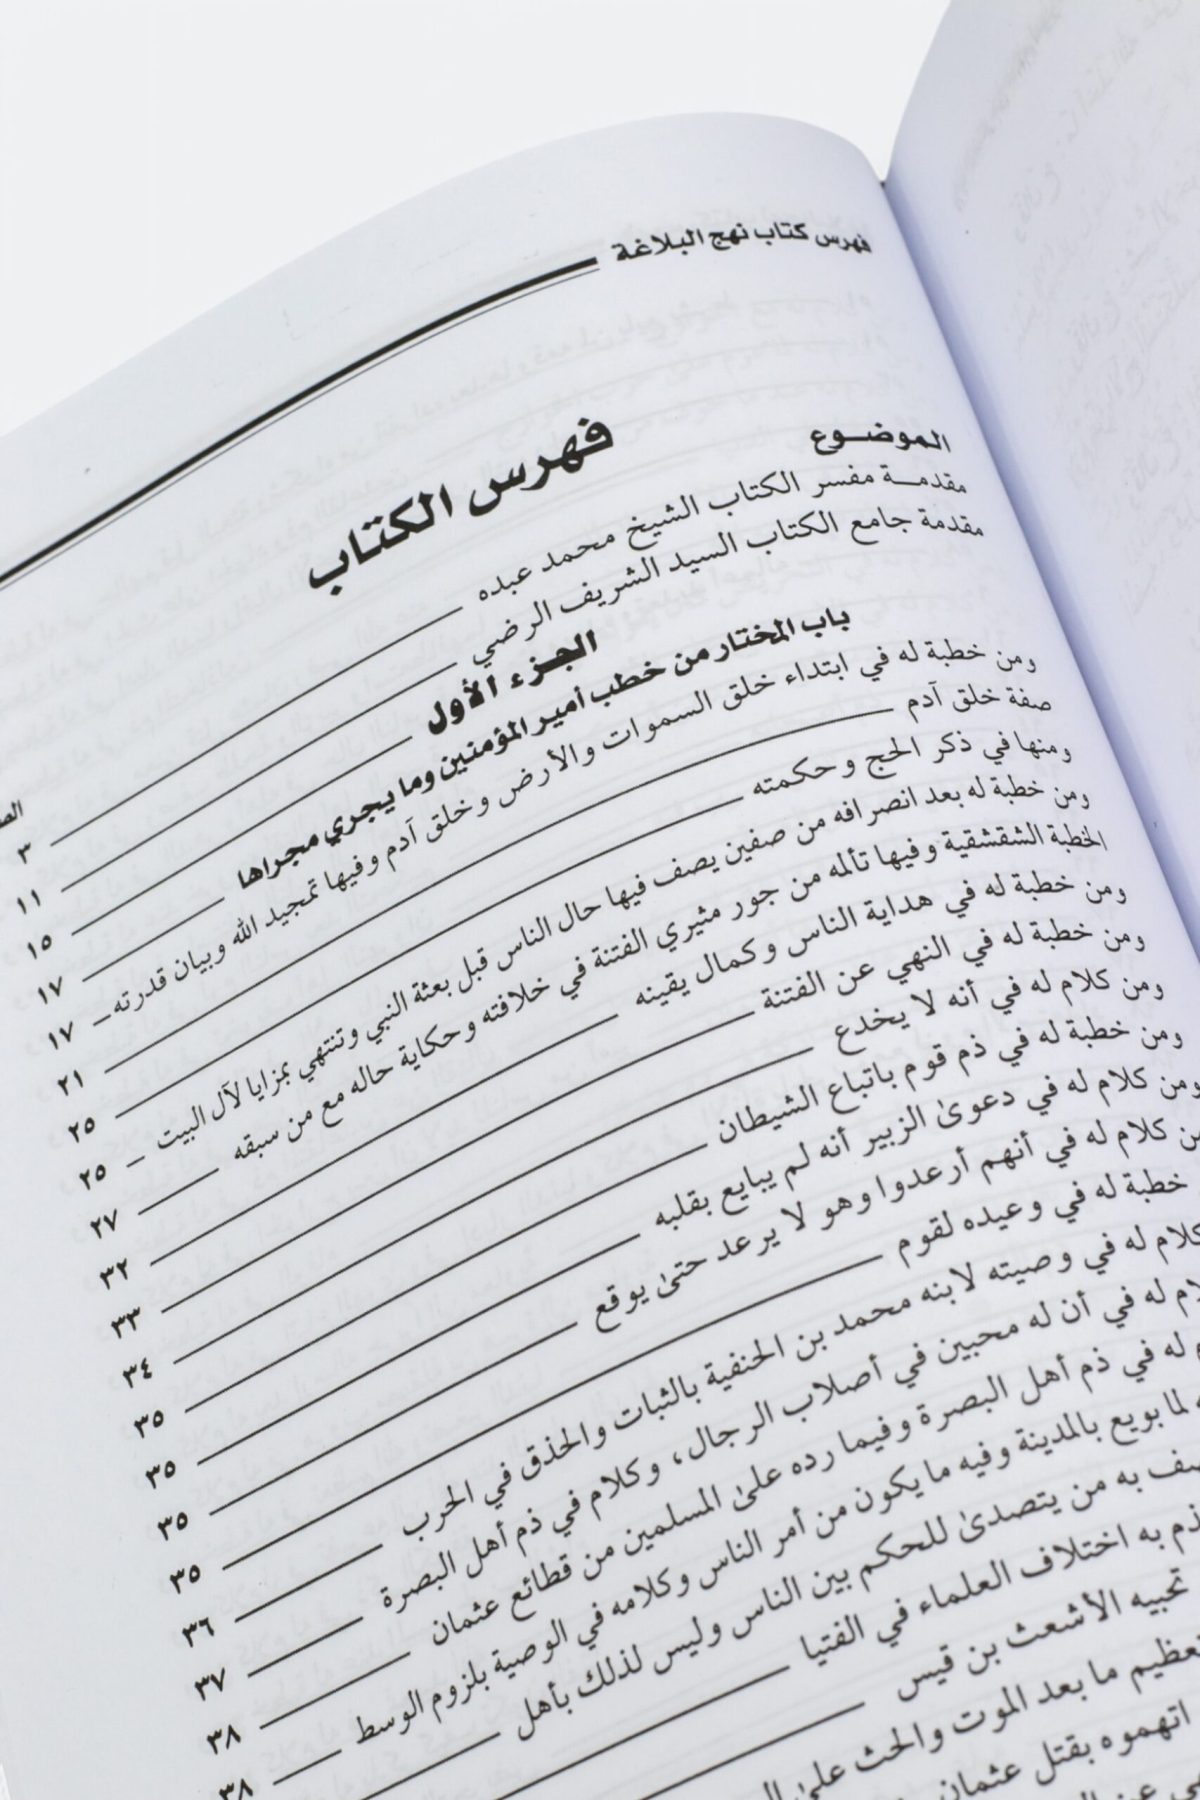 فهرس كتاب نهج البلاغة
فهرس الكتاب
الموضوع
مقدمة مفسر الكتاب الشيخ محمد عبده ٣
مقدمة جامع الكتاب السيد الشريف الرضي ١١
الجزء الأول ١٥
باب المختار من خطب أمير المؤمنين وما يجري مجراها ١٧
ومن خطبة له في ابتداء خلق السموات والأرض وخلق آدم وفيها تمجيد الله وبيان قدرته ١٧
صفة خلق آدم ٢١
ومنها في ذكر الحج وحكمته ٢٥
ومن خطبة له بعد انصرافه من صفين يصف فيها حال الناس قبل بعثة النبي وتنتهي بمزايا لآل البيت ٢٥
الخطبة الشقشقية وفيها تألمه من جور مثيري الفتنة في خلافته وحكاية حاله مع من سبقه ٢٧
ومن خطبة له في هداية الناس وكمال يقينه ٣٢
ومن خطبة له في النهي عن الفتنة ٣٣
ومن كلام له في أنه لا يخدع ٣٤
ومن خطبة له في ذم قوم باتباع الشيطان ٣٥
ومن كلام له في دعوى الزبير أنه لم يبايع بقلبه ٣٥
كلام له في أنهم أرعدوا وهو لا يرعد حتى يوقع ٣٥
خطبة له في وعيده لقوم ٣٥
كلام له في وصيته لابنه محمد بن الحنفية بالثبات والحذق في الحرب ٣٦
له في أن له محبين في أصلاب الرجال، وكلام في ذم أهل البصرة ٣٧
له في ذم أهل البصرة وفيما رده على المسلمين من قطائع عثمان ٣٨
لما بويع بالمدينة وفيه ما يكون من أمر الناس وكلامه في الوصية بلزوم الوسط ٣٨
به من يتصدى للحكم بين الناس وليس لذلك بأهل
به اختلاف العلماء في الفتيا
الأشعث بن قيس
ما بعد الموت والحث على
اتهموه بقتل عثمان